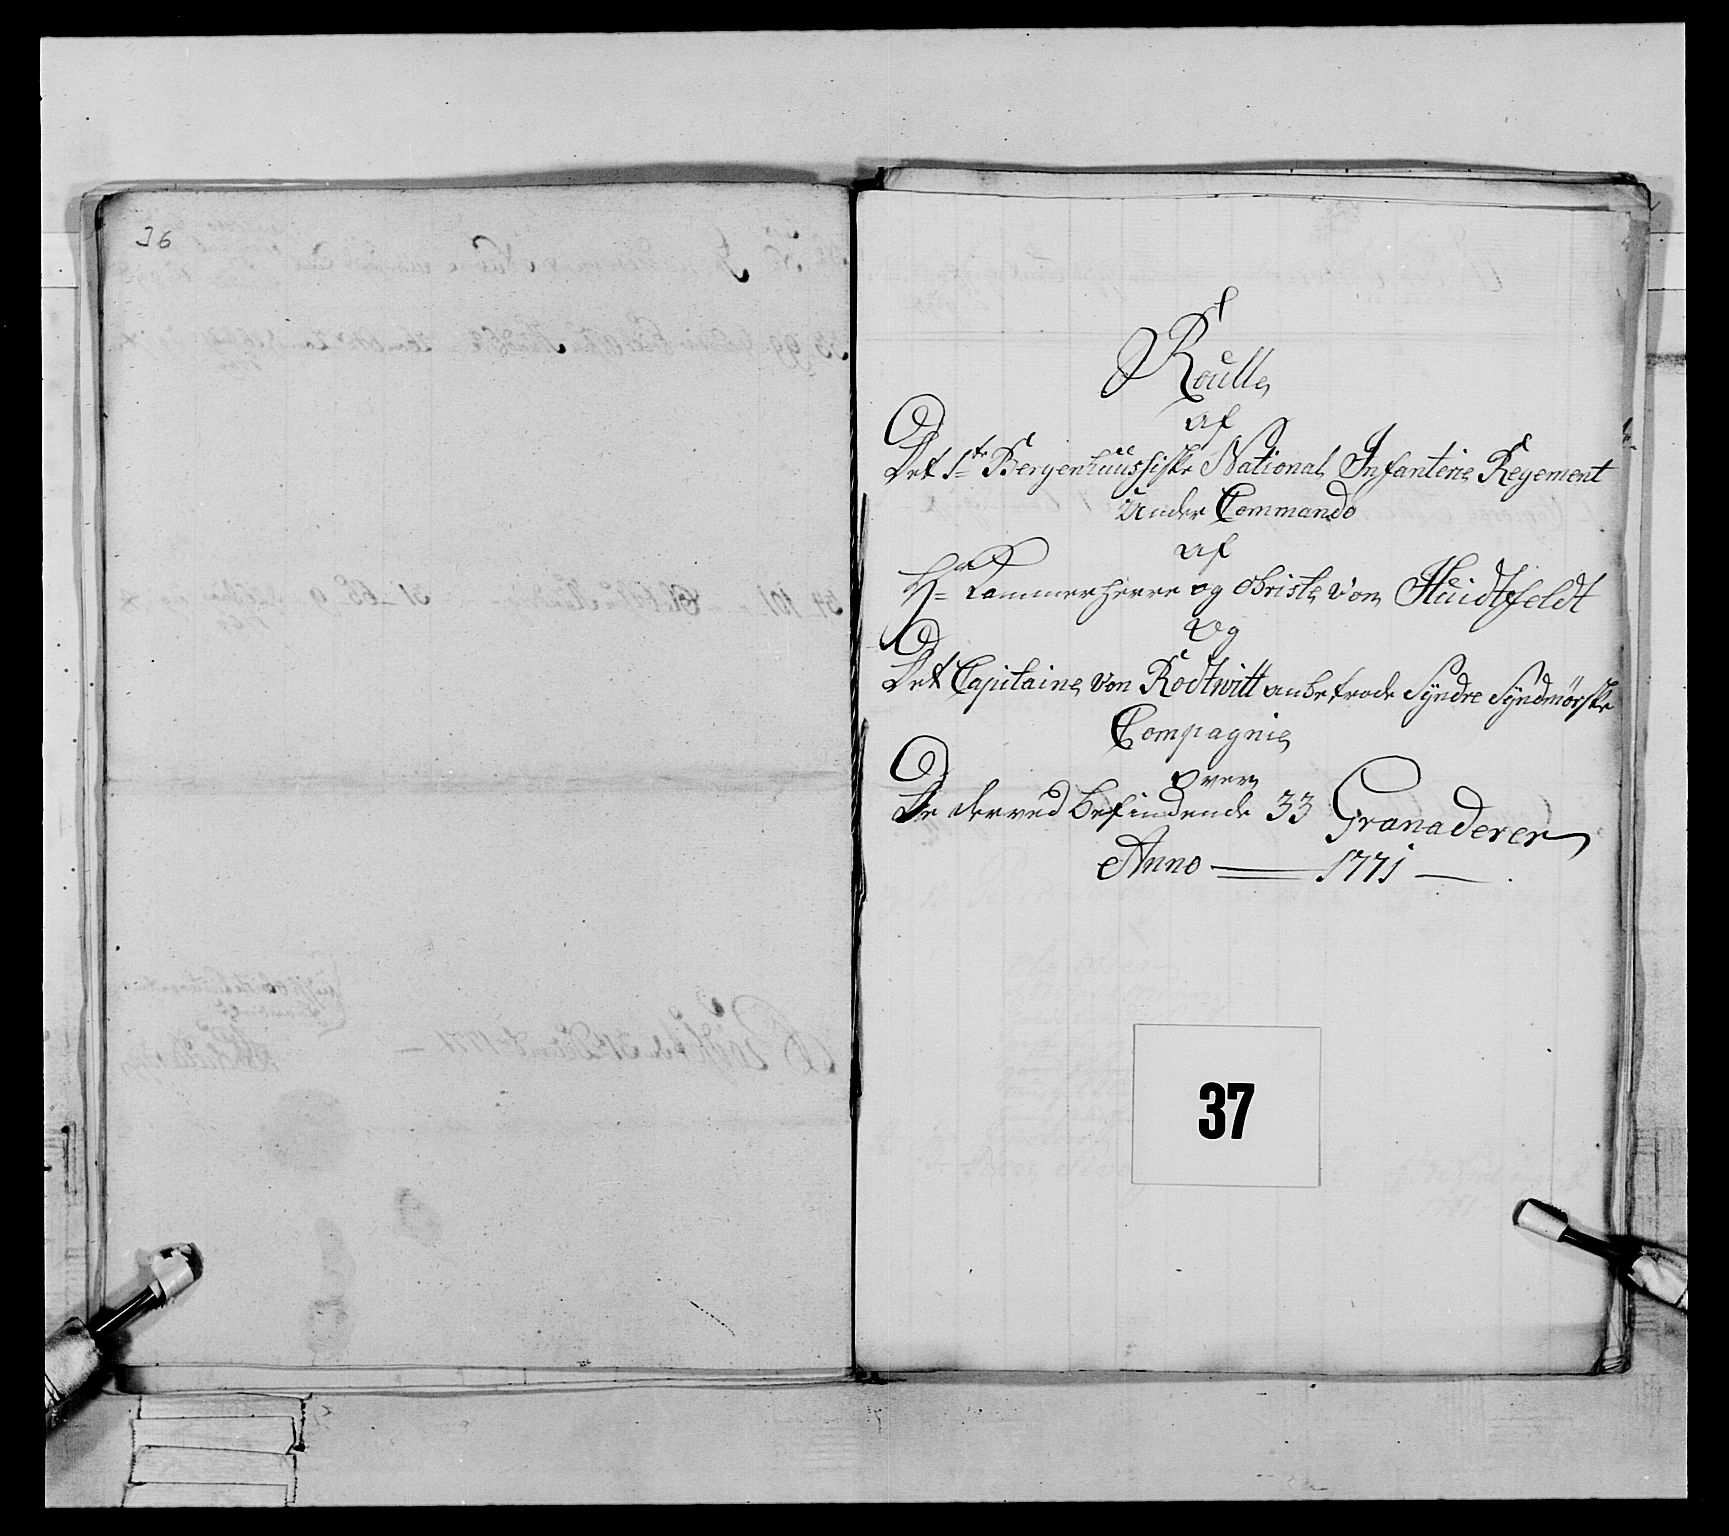 36
Roulle
af
Det 1te Bergenhuussiske National Infanterie Regement
Under Commando
af
Hr Kammerherre og Obriste von Huidtfeldt
Og
Det Capitaine von Rodtwitt anbetroede Syndre Syndmørske
Compagnie
over
De derved befindende 33 Granaderer
Anno 1771
37